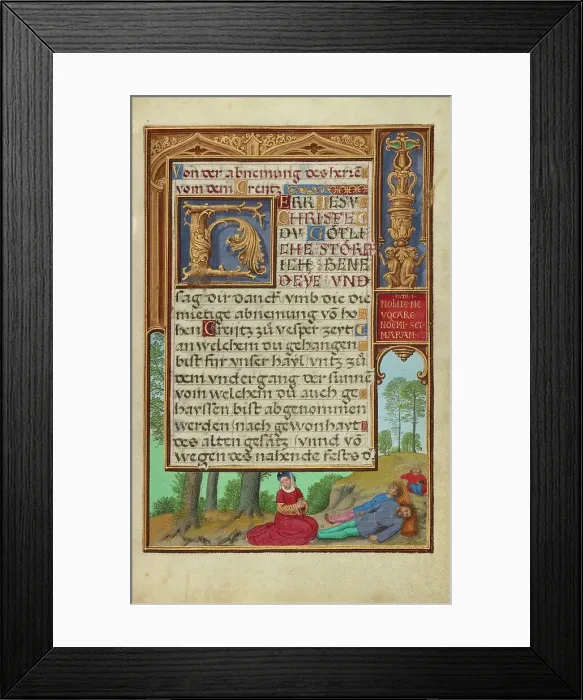 Von der abnemung des herrē
vom dem Creütz
HERR IESV
CHRISTE
DV GÖTLI
CHE STÖR
ICH BENE
DEYE VND
sag dir danck vmb die die
mietige abnemung vō ho
hen Creütz zů vesper zeyt
an welchem du gehangen
bist für vnser hayl vntz zů
dem vndergang der sunnē
vom welchem du auch ge
hayssen bist abgenommen
werden nach gewonhayt
des alten gesätz vnnd vō
wegen des nahende fests d
NOLITE ME
VOCARE
NOEMI SET
MARAN